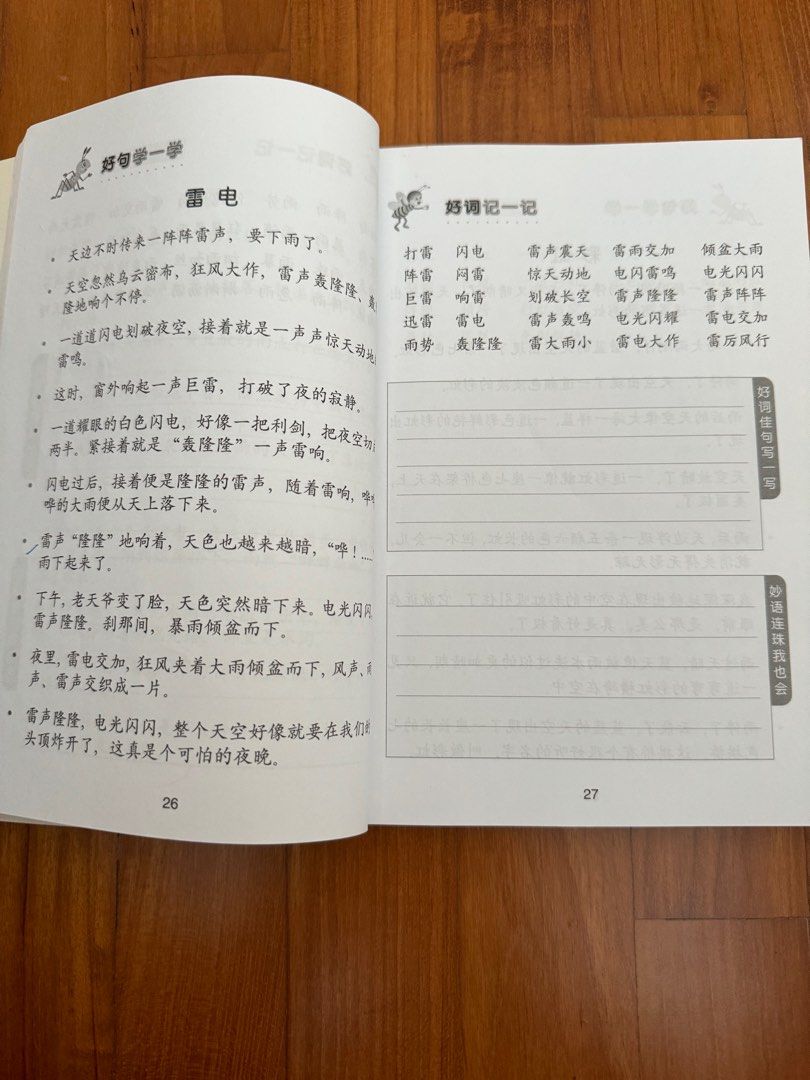 好句学一学
雷电
天边不时传来一阵阵雷声，要下雨了。
天空忽然乌云密布，狂风大作，雷声轰隆隆、
隆地响个不停。
一道道闪电划破夜空，接着就是一声声惊天动地
雷鸣。
这时，窗外响起一声巨雷，打破了夜的寂静。
一道耀眼的白色闪电，好像一把利剑，把夜空切
两半。紧接着就是“轰隆隆”一声雷响。
闪电过后，接着便是隆隆的雷声，随着雷响，哗
哗的大雨便从天上落下来。
雷声“隆隆”地响着，天色也越来越暗，“哗！……
雨下起来了。
下午，老天爷变了脸，天色突然暗下来。电光闪闪
雷声隆隆。刹那间，暴雨倾盆而下。
夜里，雷电交加，狂风夹着大雨倾盆而下，风声、雨
声、雷声交织成一片。
雷声隆隆，电光闪闪，整个天空好像就要在我们的
头顶炸开了，这真是个可怕的夜晚。
26
好词记一记
打雷 闪电 雷声震天 雷雨交加 倾盆大雨
阵雷 闷雷 惊天动地 电闪雷鸣 电光闪闪
巨雷 响雷 划破长空 雷声隆隆 雷声阵阵
迅雷 雷电 雷声轰鸣 电光闪耀 雷电交加
雨势 轰隆隆 雷大雨小 雷电大作 雷厉风行
好词佳句写一写
妙语连珠我也会
27